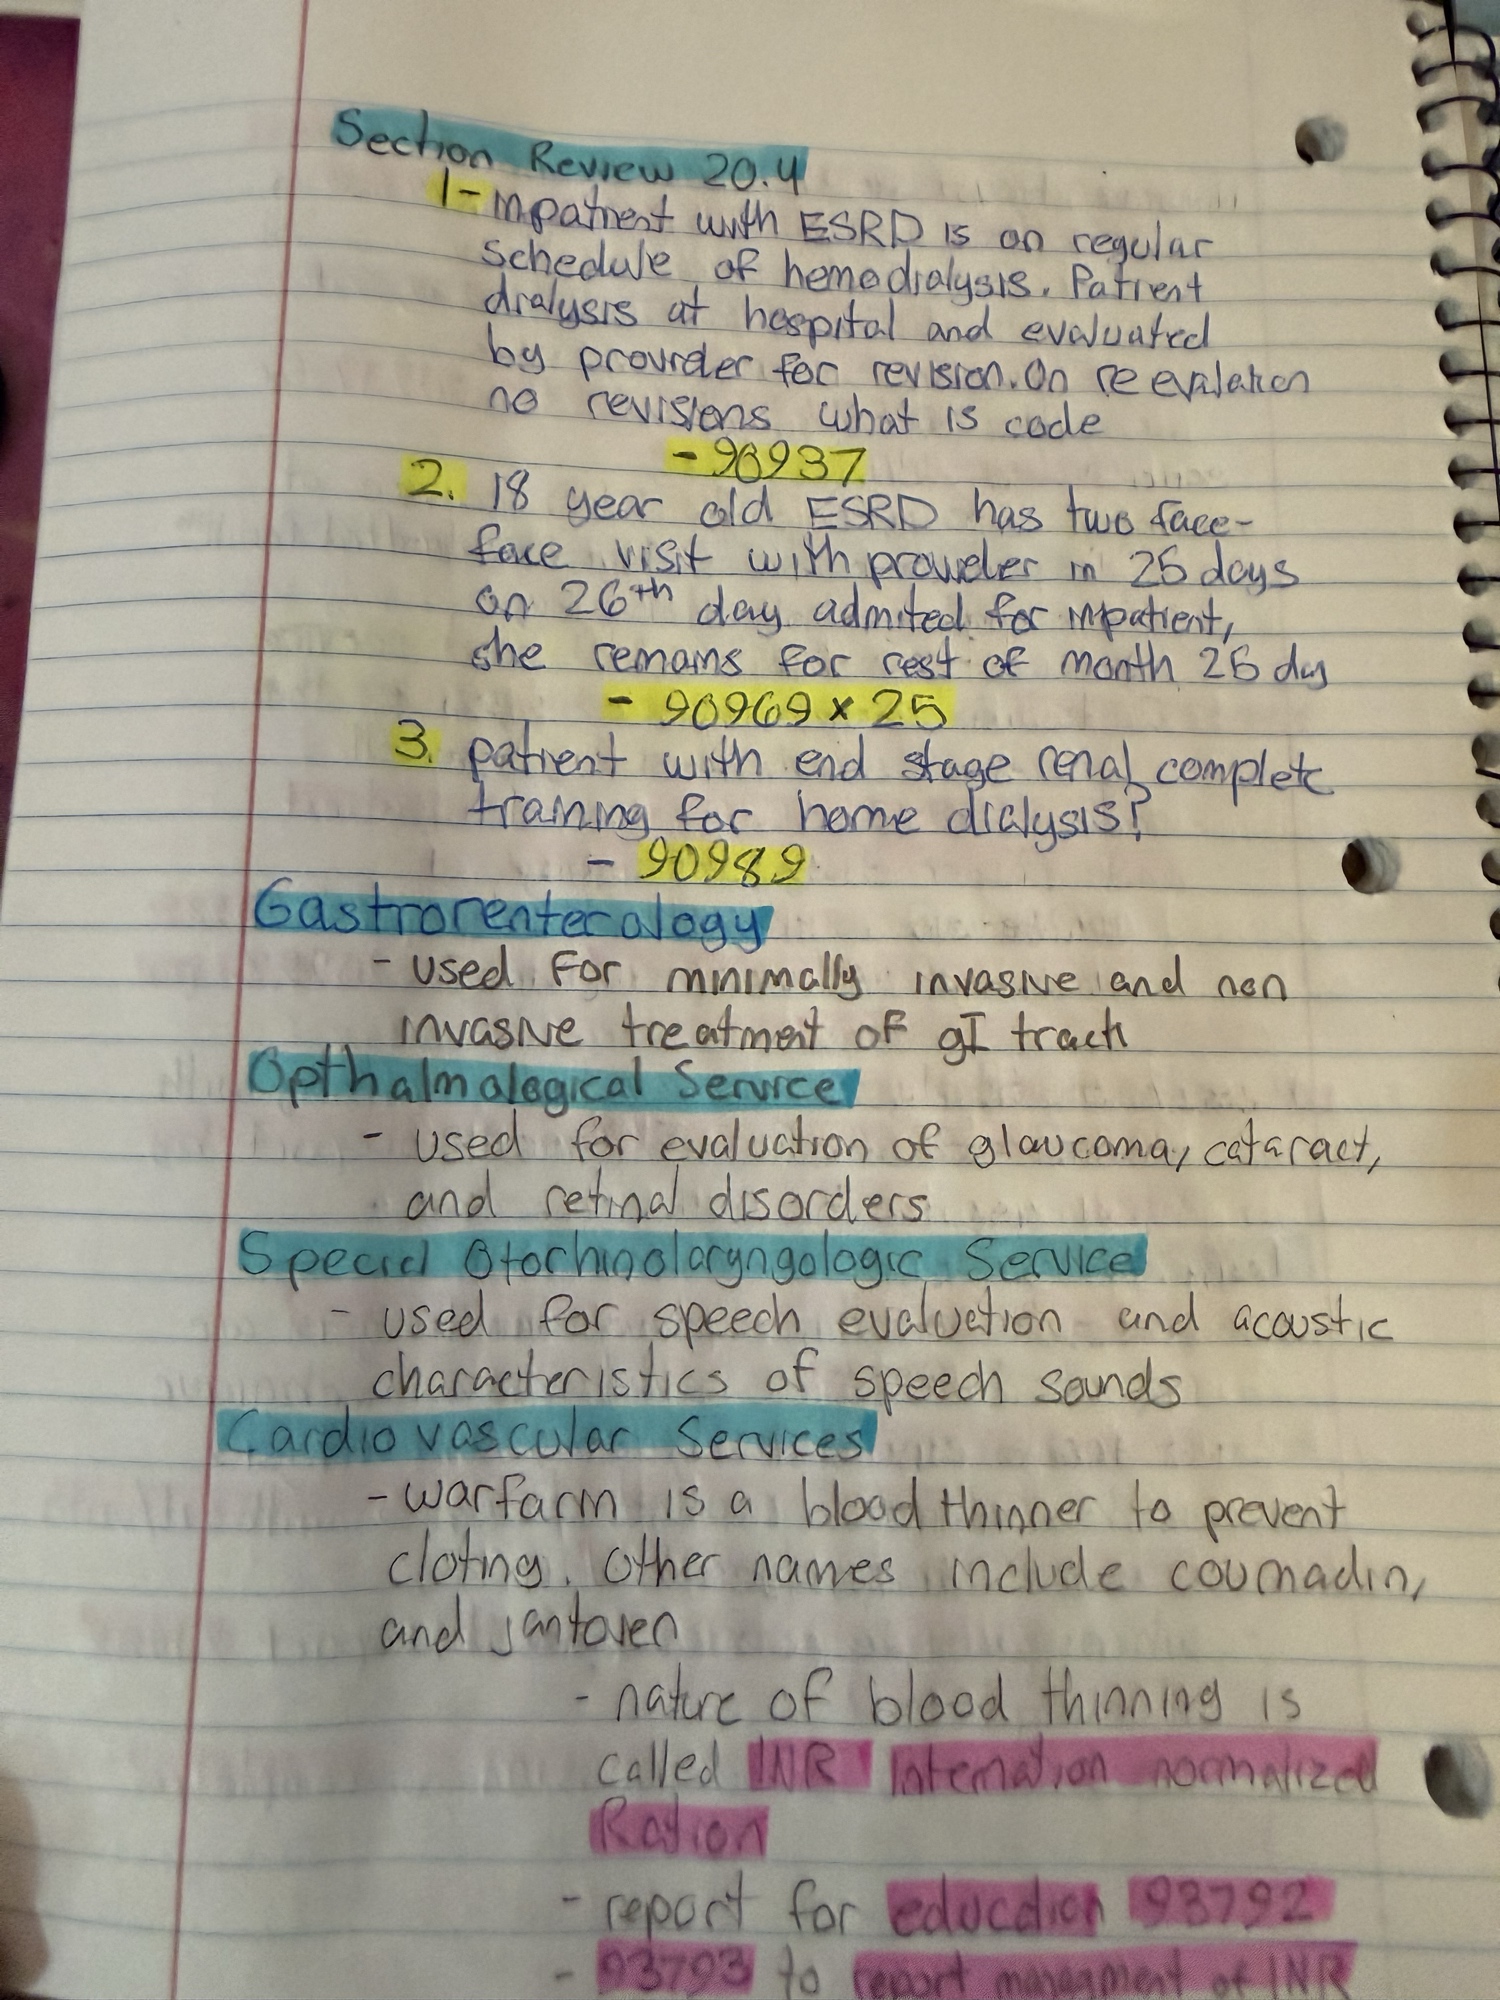 Section Review 20.4
1- inpatient with ESRD is on regular
schedule of hemodialysis. Patient
dialysis at hospital and evaluated
by provider for revision. On re evalation
no revisions what is code
- 90937
2. 18 year old ESRD has two face-
face visit with provider in 25 days
on 26th day admited for inpatient,
she remains for rest of month 26 day
- 90969 x 25
3. patient with end stage renal complete
training for home dialysis?
- 90989
Gastrorenterology
- used For minimally invasive and non
invasive treatment of gI tract
Opthalmological Service
- used for evaluation of glaucoma, cataract,
and retinal disorders
Special Otorhinolaryngologic Service
- used for speech evaluation and acoustic
characteristics of speech sounds
Cardiovascular Services
- warfarin is a blood thinner to prevent
cloting. Other names include coumadin,
and jantoven
- nature of blood thinning is
called INR Internation normalized
Ration
- report for education 93792
- 93793 to report managment of INR